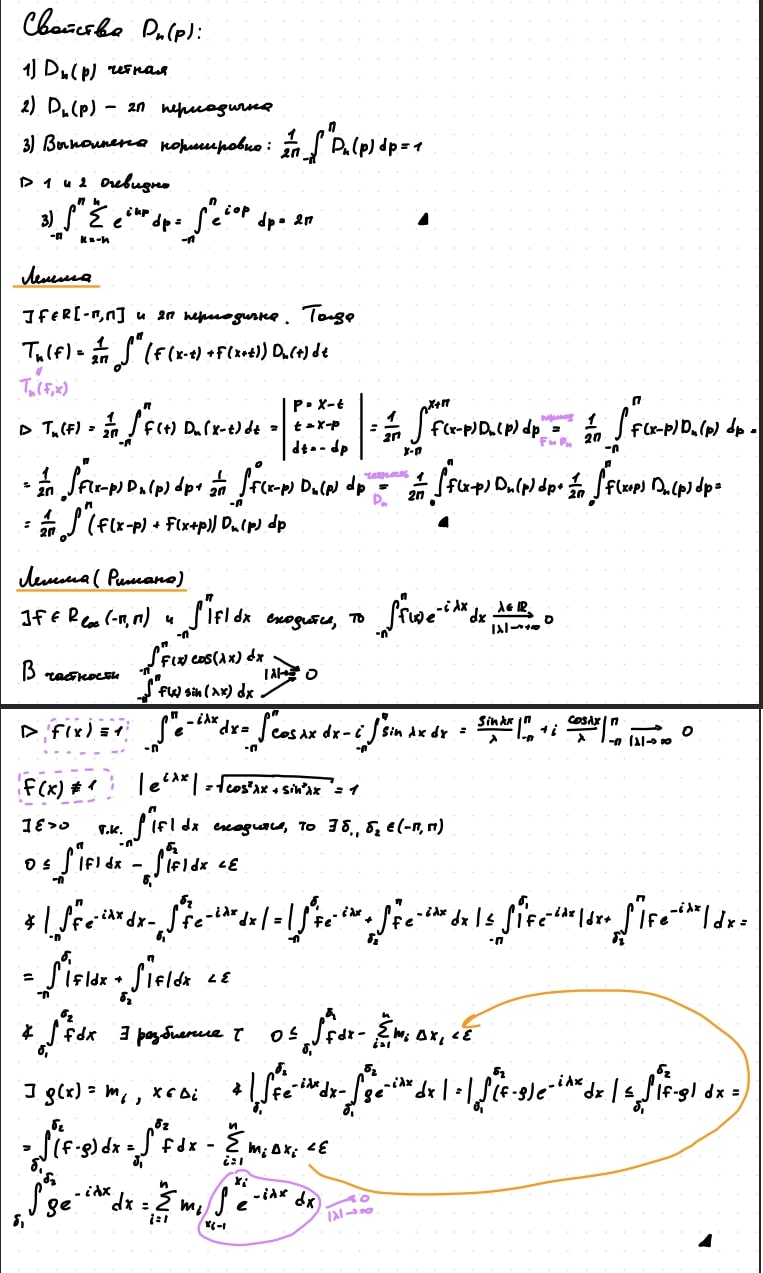 Свойства Dₙ(p):
1) Dₙ(p) чётная
2) Dₙ(p) – 2π периодична
3) Выполнена нормировка: 1/2π ∫_{-π}^{π} Dₙ(p) dp = 1
▷ 1 и 2 очевидно
3) ∫_{-π}^{π} Σ_{k=-n}^{n} e^{ikp} dp = ∫_{-π}^{π} e^{i0p} dp = 2π ◢
Лемма
∃ f ∈ R[-π,π] и 2π периодична. Тогда
Tₙ(f) = 1/2π ∫_0^π (f(x-t) + f(x+t)) Dₙ(t) dt
Tₙ(f,x)
▷ Tₙ(f) = 1/2π ∫_{-π}^{π} f(t) Dₙ(x-t) dt = | p = x-t t = x-p dt = -dp | = 1/2π ∫_{x-π}^{x+π} f(x-p) Dₙ(p) dp = f и Dₙ 1/2π ∫_{-π}^{π} f(x-p) Dₙ(p) dp =
= 1/2π ∫_0^π f(x-p) Dₙ(p) dp + 1/2π ∫_{-π}^0 f(x-p) Dₙ(p) dp =(чётность Dₙ) 1/2π ∫_0^π f(x-p) Dₙ(p) dp + 1/2π ∫_0^π f(x+p) Dₙ(p) dp =
= 1/2π ∫_0^π (f(x-p) + f(x+p)) Dₙ(p) dp ◢
Лемма (Римана)
∃ f ∈ R_{loc}(-π,π) и ∫_{-π}^{π} |f| dx сходится, то ∫_{-π}^{π} f(x) e^{-iλx} dx →(λ∈ℝ, |λ|→+∞) 0
В частности ∫_{-π}^{π} f(x) cos(λx) dx
∫_{-π}^{π} f(x) sin(λx) dx |λ|→∞ 0
▷ f(x) ≡ 1 ∫_{-π}^{π} e^{-iλx} dx = ∫_{-π}^{π} cos λx dx - i ∫_{-π}^{π} sin λx dx = sin λx/λ |_{-π}^{π} + i cos λx/λ |_{-π}^{π} →(|λ|→∞) 0
f(x) ≢ 1 |e^{iλx}| = √(cos²λx + sin²λx) = 1
∃ ε>0 т.к. ∫_{-π}^{π} |f| dx сходится, то ∃ δ₁, δ₂ ∈ (-π,π)
0 ≤ ∫_{-π}^{π} |f| dx - ∫_{δ₁}^{δ₂} |f| dx < ε
∢ | ∫_{-π}^{π} f e^{-iλx} dx - ∫_{δ₁}^{δ₂} f e^{-iλx} dx | = | ∫_{-π}^{δ₁} f e^{-iλx} + ∫_{δ₂}^{π} f e^{-iλx} dx | ≤ ∫_{-π}^{δ₁} |f e^{-iλx}| dx + ∫_{δ₂}^{π} |f e^{-iλx}| dx =
= ∫_{-π}^{δ₁} |f| dx + ∫_{δ₂}^{π} |f| dx < ε
∢ ∫_{δ₁}^{δ₂} f dx ∃ разбиение τ 0 ≤ ∫_{δ₁}^{δ₂} f dx - Σ_{i=1}^{n} mᵢ Δxᵢ < ε
∃ g(x) = mᵢ, x ∈ Δᵢ ∢ | ∫_{δ₁}^{δ₂} f e^{-iλx} dx - ∫_{δ₁}^{δ₂} g e^{-iλx} dx | = | ∫_{δ₁}^{δ₂} (f-g) e^{-iλx} dx | ≤ ∫_{δ₁}^{δ₂} |f-g| dx =
= ∫_{δ₁}^{δ₂} (f-g) dx = ∫_{δ₁}^{δ₂} f dx - Σ_{i=1}^{n} mᵢ Δxᵢ < ε
∫_{δ₁}^{δ₂} g e^{-iλx} dx = Σ_{i=1}^{n} mᵢ ∫_{x_{i-1}}^{x_i} e^{-iλx} dx →(|λ|→∞) 0
◢